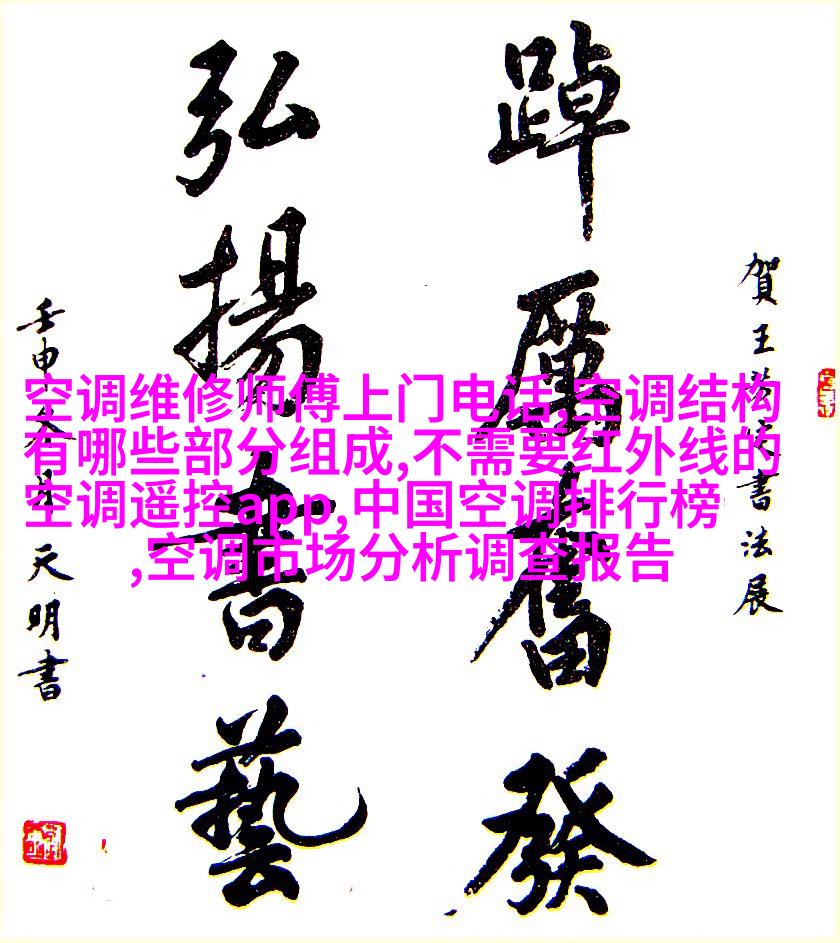 賀王書法展
踔厲奮發
弘揚書藝
壬申天明書
空调维修师傅上门电话,空调结构
有哪些部分组成,不需要红外线的
空调遥控app,中国空调排行榜
,空调市场分析调查报告